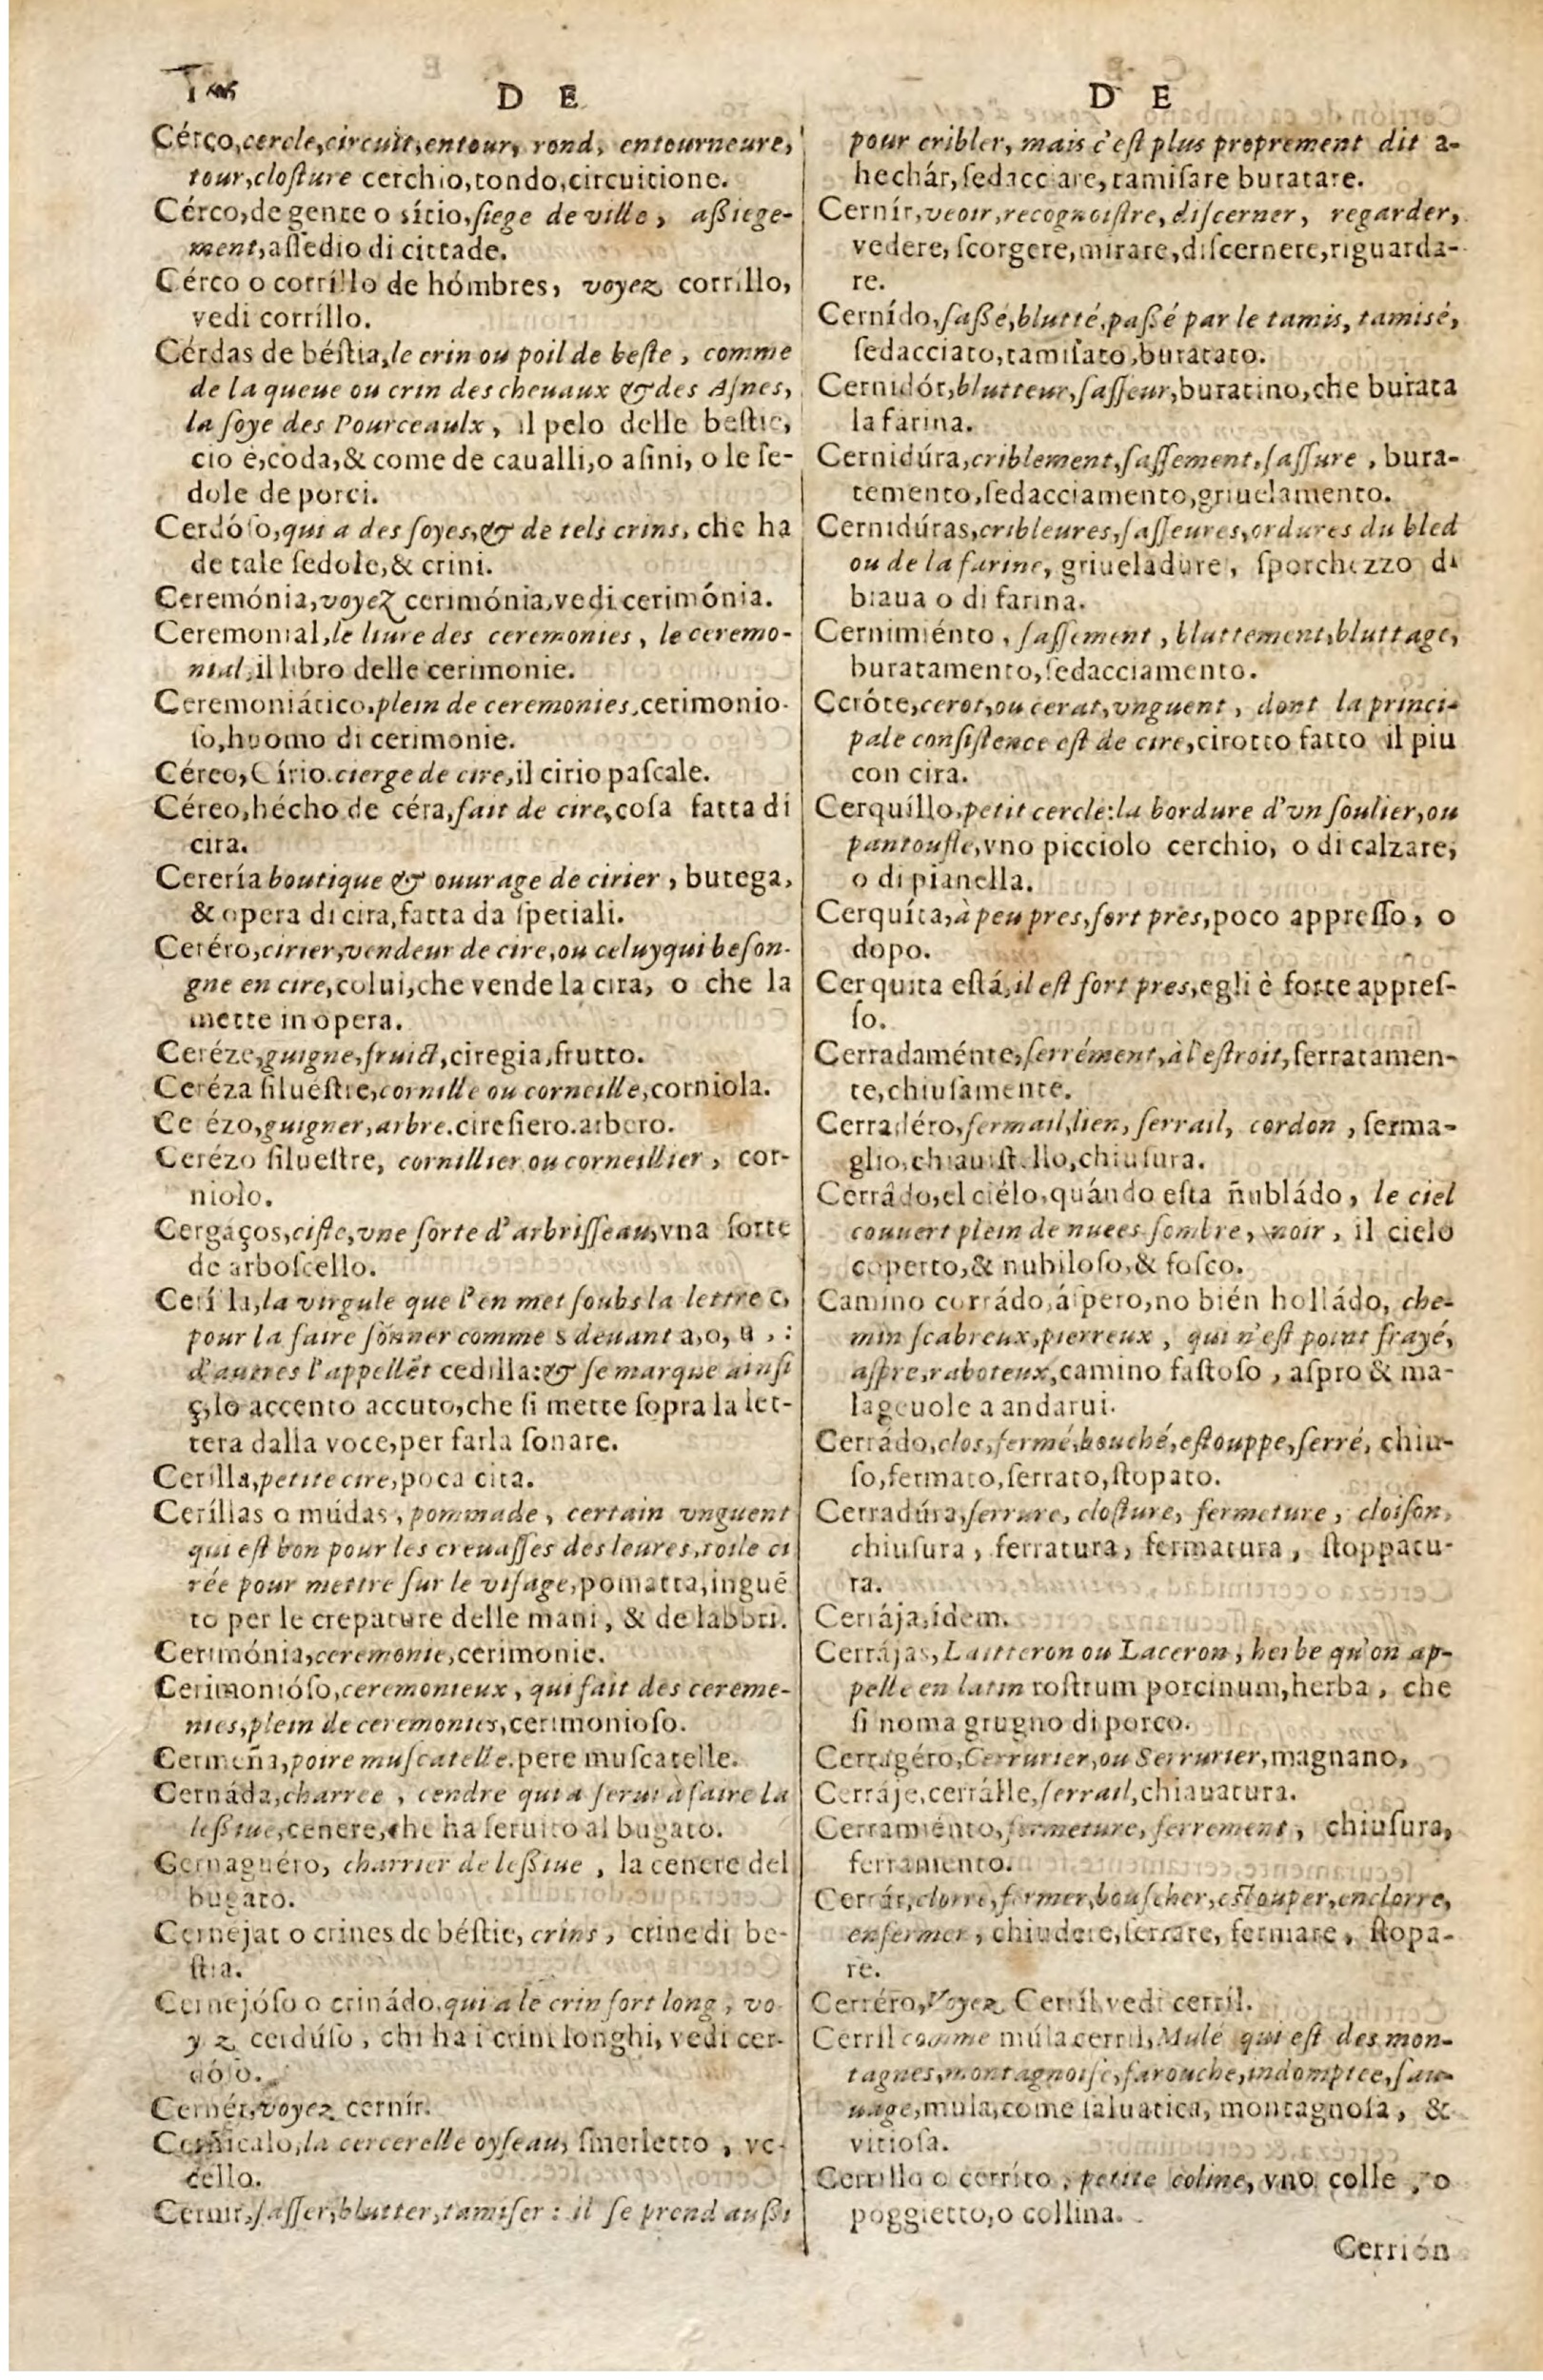 D E
Cérço,cercle,circuit,entour, rond, entourneure,
tour,closture cerchio,tondo,circuitione.
Cérco,de gente o sítio,siege de ville, aßiege-
ment,assedio di cittade.
Cérco o corríllo de hómbres, voyez corríllo,
vedi corríllo.
Cérdas de béstia,le crin ou poil de beste, comme
de la queue ou crin des cheuaux & des Asnes,
la soye des Pourceaulx, il pelo delle bestie,
cio è,coda,& come de caualli,o asini, o le se-
dole de porci.
Cerdóso,qui a des soyes,& de tels crins, che ha
de tale sedole,& crini.
Ceremónia,voyez cerimónia,vedi cerimónia.
Ceremonial,le liure des ceremonies, le ceremo-
nial,il libro delle cerimonie.
Ceremoniático,plein de ceremonies,cerimonio-
so,huomo di cerimonie.
Céreo,Círio.cierge de cire,il cirio pascale.
Céreo,hécho de céra,fait de cire,cosa fatta di
cira.
Cerería boutique & ouurage de cirier, butega,
& opera di cira,fatta da speciali.
Ceréro,cirier,vendeur de cire,ou celuy qui beson-
gne en cire,colui,che vende la cira, o che la
mette in opera.
Ceréze,guigne,fruict,ciregia,frutto.
Ceréza siluestre,cornille ou corneille,corniola.
Ce ézo,guigner,arbre.ciresiero.arboro.
Cerézo siluestre, cornillier ou corneillier, cor-
niolo.
Cergaços,ciste,vne sorte d'arbrisseau,vna sorte
de arboscello.
Cerí la,la virgule que l'en met soubs la lettre c,
pour la faire sonner comme s deuant a,o, u,:
d'autres l'appellēt cedilla:& se marque ainsi
ç,lo accento accuto,che si mette sopra la let-
tera dalla voce,per farla sonare.
Cerilla,petite cire,poca cira.
Ceríllas o múdas, pommade, certain vnguent
qui est bon pour les creuasses des leures,toile ci
rée pour mettre sur le visage,pomatta,inguē
to per le crepature delle mani, & de labbri.
Cerimónia,ceremonie,cerimonie.
Cerimonióso,ceremonieux, qui fait des cereme-
nies,plein de ceremonies,cerimonioso.
Cermeña,poire muscatelle.pere muscatelle.
Cernáda,charree, cendre qui a serui à faire la
leßiue,cenere,che ha seruito al bugato.
Cernaguéro, charrier de leßiue, la cenere del
bugato.
Cernejat o crines de béstie, crins, crine di be-
stia.
Cernejóso o crinádo,qui a le crin fort long, vo
y z cerdúso, chi ha i crini longhi, vedi cer-
dóso.
Cernér,voyez cernír.
Cerñicalo,la cercerelle oyseau, smerletto, vc-
cello.
Cernir,sasser,blutter,tamiser: il se prend außi
D E
pour cribler, mais c'est plus proprement dit a-
hechár,sedacciare,tamisare buratare.
Cernír,veoir,recognoistre,discerner, regarder,
vedere,scorgere,mirare,discernere,riguarda-
re.
Cernído,saßé,blutté,paßé par le tamis, tamisé,
sedacciato,tamisato,buratato.
Cernidór,blutteur,sasseur,buratino,che burata
la farina.
Cernidúra,criblement,sassement,sassure, bura-
temento,sedacciamento,griuelamento.
Cernidúras,cribleures,sasseures,ordures du bled
ou de la farine, griueladure, sporchezzo di
biaua o di farina.
Cernimiénto, sassement, bluttement,bluttage,
buratamento,sedacciamento.
Ceróte,cerot,ou cerat,vnguent, dont la princi-
pale consistence est de cire,cirotto fatto il piu
con cira.
Cerquíllo,petit cercle:la bordure d'vn soulier,ou
pantoufle,vno picciolo cerchio, o di calzare,
o di pianella.
Cerquíta,à peu pres,fort pres,poco appresso, o
dopo.
Cerquita está,il est fort pres,egli è forte appres-
so.
Cerradaménte,serrément,à l'estroit,serratamen-
te,chiusamente.
Cerradéro,fermail,lien, serrail, cordon, ferma-
glio,chiauistello,chiusura.
Cerrádo,el ciélo,quándo esta ñubládo, le ciel
couuert plein de nuees sombre, noir, il cielo
coperto,& nubiloso,& fosco.
Camino corrádo,áspero,no bién holládo, che-
min scabreux,pierreux, qui n'est point frayé,
aspre,raboteux,camino fastoso, aspro & ma-
lageuole a andarui.
Cerrádo,clos,fermé,bouché,estouppe,serré, chiu-
so,fermato,serrato,stopato.
Cerradúra,serrure, closture, fermeture, cloison,
chiusura, ferratura, fermatura, stoppatu-
ra.
Cerrája,idem.
Cerrájas,Laitteron ou Laceron, herbe qu'on ap-
pelle en latin rostrum porcinum,herba, che
si noma grugno di porco.
Cerragéro,Cerrurier,ou Serrurier,magnano,
Cerráje,cerrálle,serrail,chiauatura.
Cerramiénto,fermeture, serrement, chiusura,
ferramento.
Cerrár,clorre,fermer,bouscher,estouper,enclorre,
enfermer, chiudere,serrare, fermare, stopa-
re.
Cerréro,Voyez Cerríl,vedi cerril.
Cerril comme múla cerril,Mule qui est des mon-
tagnes,montagnoise,farouche,indomptee,sau-
uage,mula,come saluatica, montagnosa, &
vitiosa.
Cerrillo o cerríto, petite coline, vno colle, o
poggietto,o collina.
Cerrión